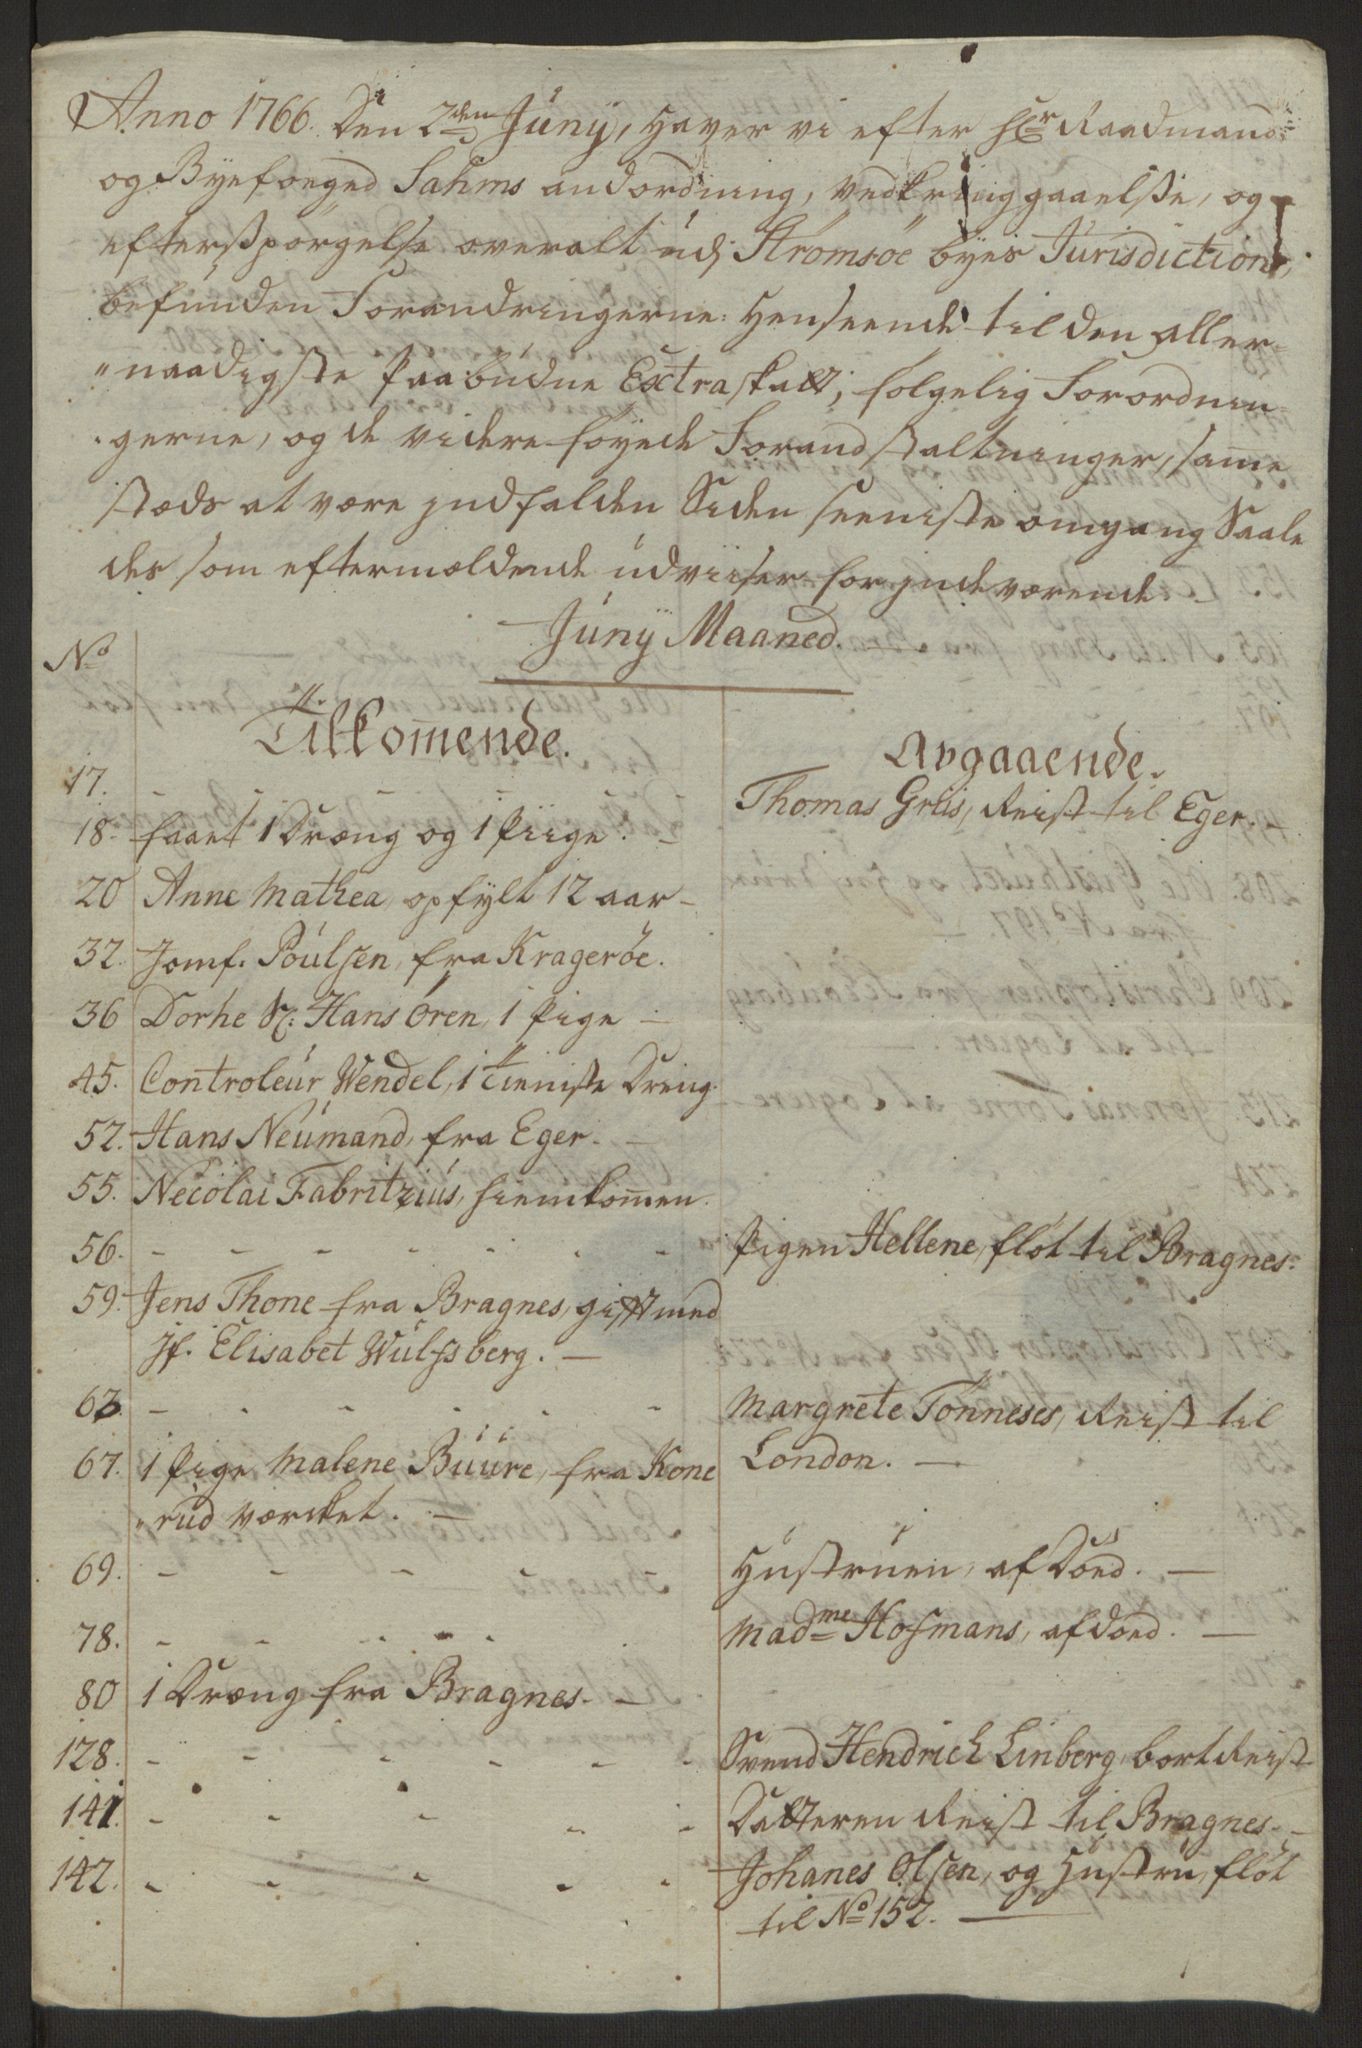 Anno 1766. Den 2den Juny, Haver vi efter Hr Raadmand
og Byefoeged Sahms andordning, vedkringgaaelsse, og
eftersspörgelse overalt udj Strömsöe byes Jurisdiction,
befunden Forandringerne: Henseende til den aller
naadigste Paabudne Extraskatt, fölgelig Forordnin
gerne, og de videre föyede Forandstaltninger, samme
stæds at være jndfalden Siden seeniste omgang Saale
des som eftermældende udviiser for jndeværende
Juny Maaned.
No
Tilkomende. Avgaaende.
17. - - - - - Thomas Grüs, Reist til Eger. -
18. faaet 1 Dræng og 1 Piige. -
20 Anne Mathea, opfylt 12 aar -
32. Jomf. Poulsen, fra Krageröe.
36 Dorhe Sl: Hans Ören, 1 Pige -
45. Controleur Wendel, 1 Tieniste Dreng.
52. Hans Neumand, fra Eger. -
55. Necolai Fabritzius, hiemkommen.
56. - - - - - - - Pigen Hellene, flöt til Bragnes.
59. Jens Thone fra Bragnes, gifft med
Jf. Elisabet Wulfsberg. -
63. - - - - - - Margrete Tönneses, Reist til
London. -
67. 1 Pige Malene Büüre, fra Kone
rud værcket. -
69. - - - - - Hustruen, af Döed. -
78. - - - - - Madme Hofmans, afdöed. -
80 1 Dræng fra Bragnes. -
128. - - - - - - Svend Hendrich Linberg, bortReist
141. - - - - - Datteren Reist til Bragnes. -
142. - - - - - Johanes Olsen, og Hustru, flöt
til No 152. -